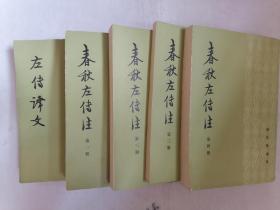 左传译文
春秋左传注
第一册
春秋左传注
第二册
春秋左传注
第三册
春秋左传注
第四册